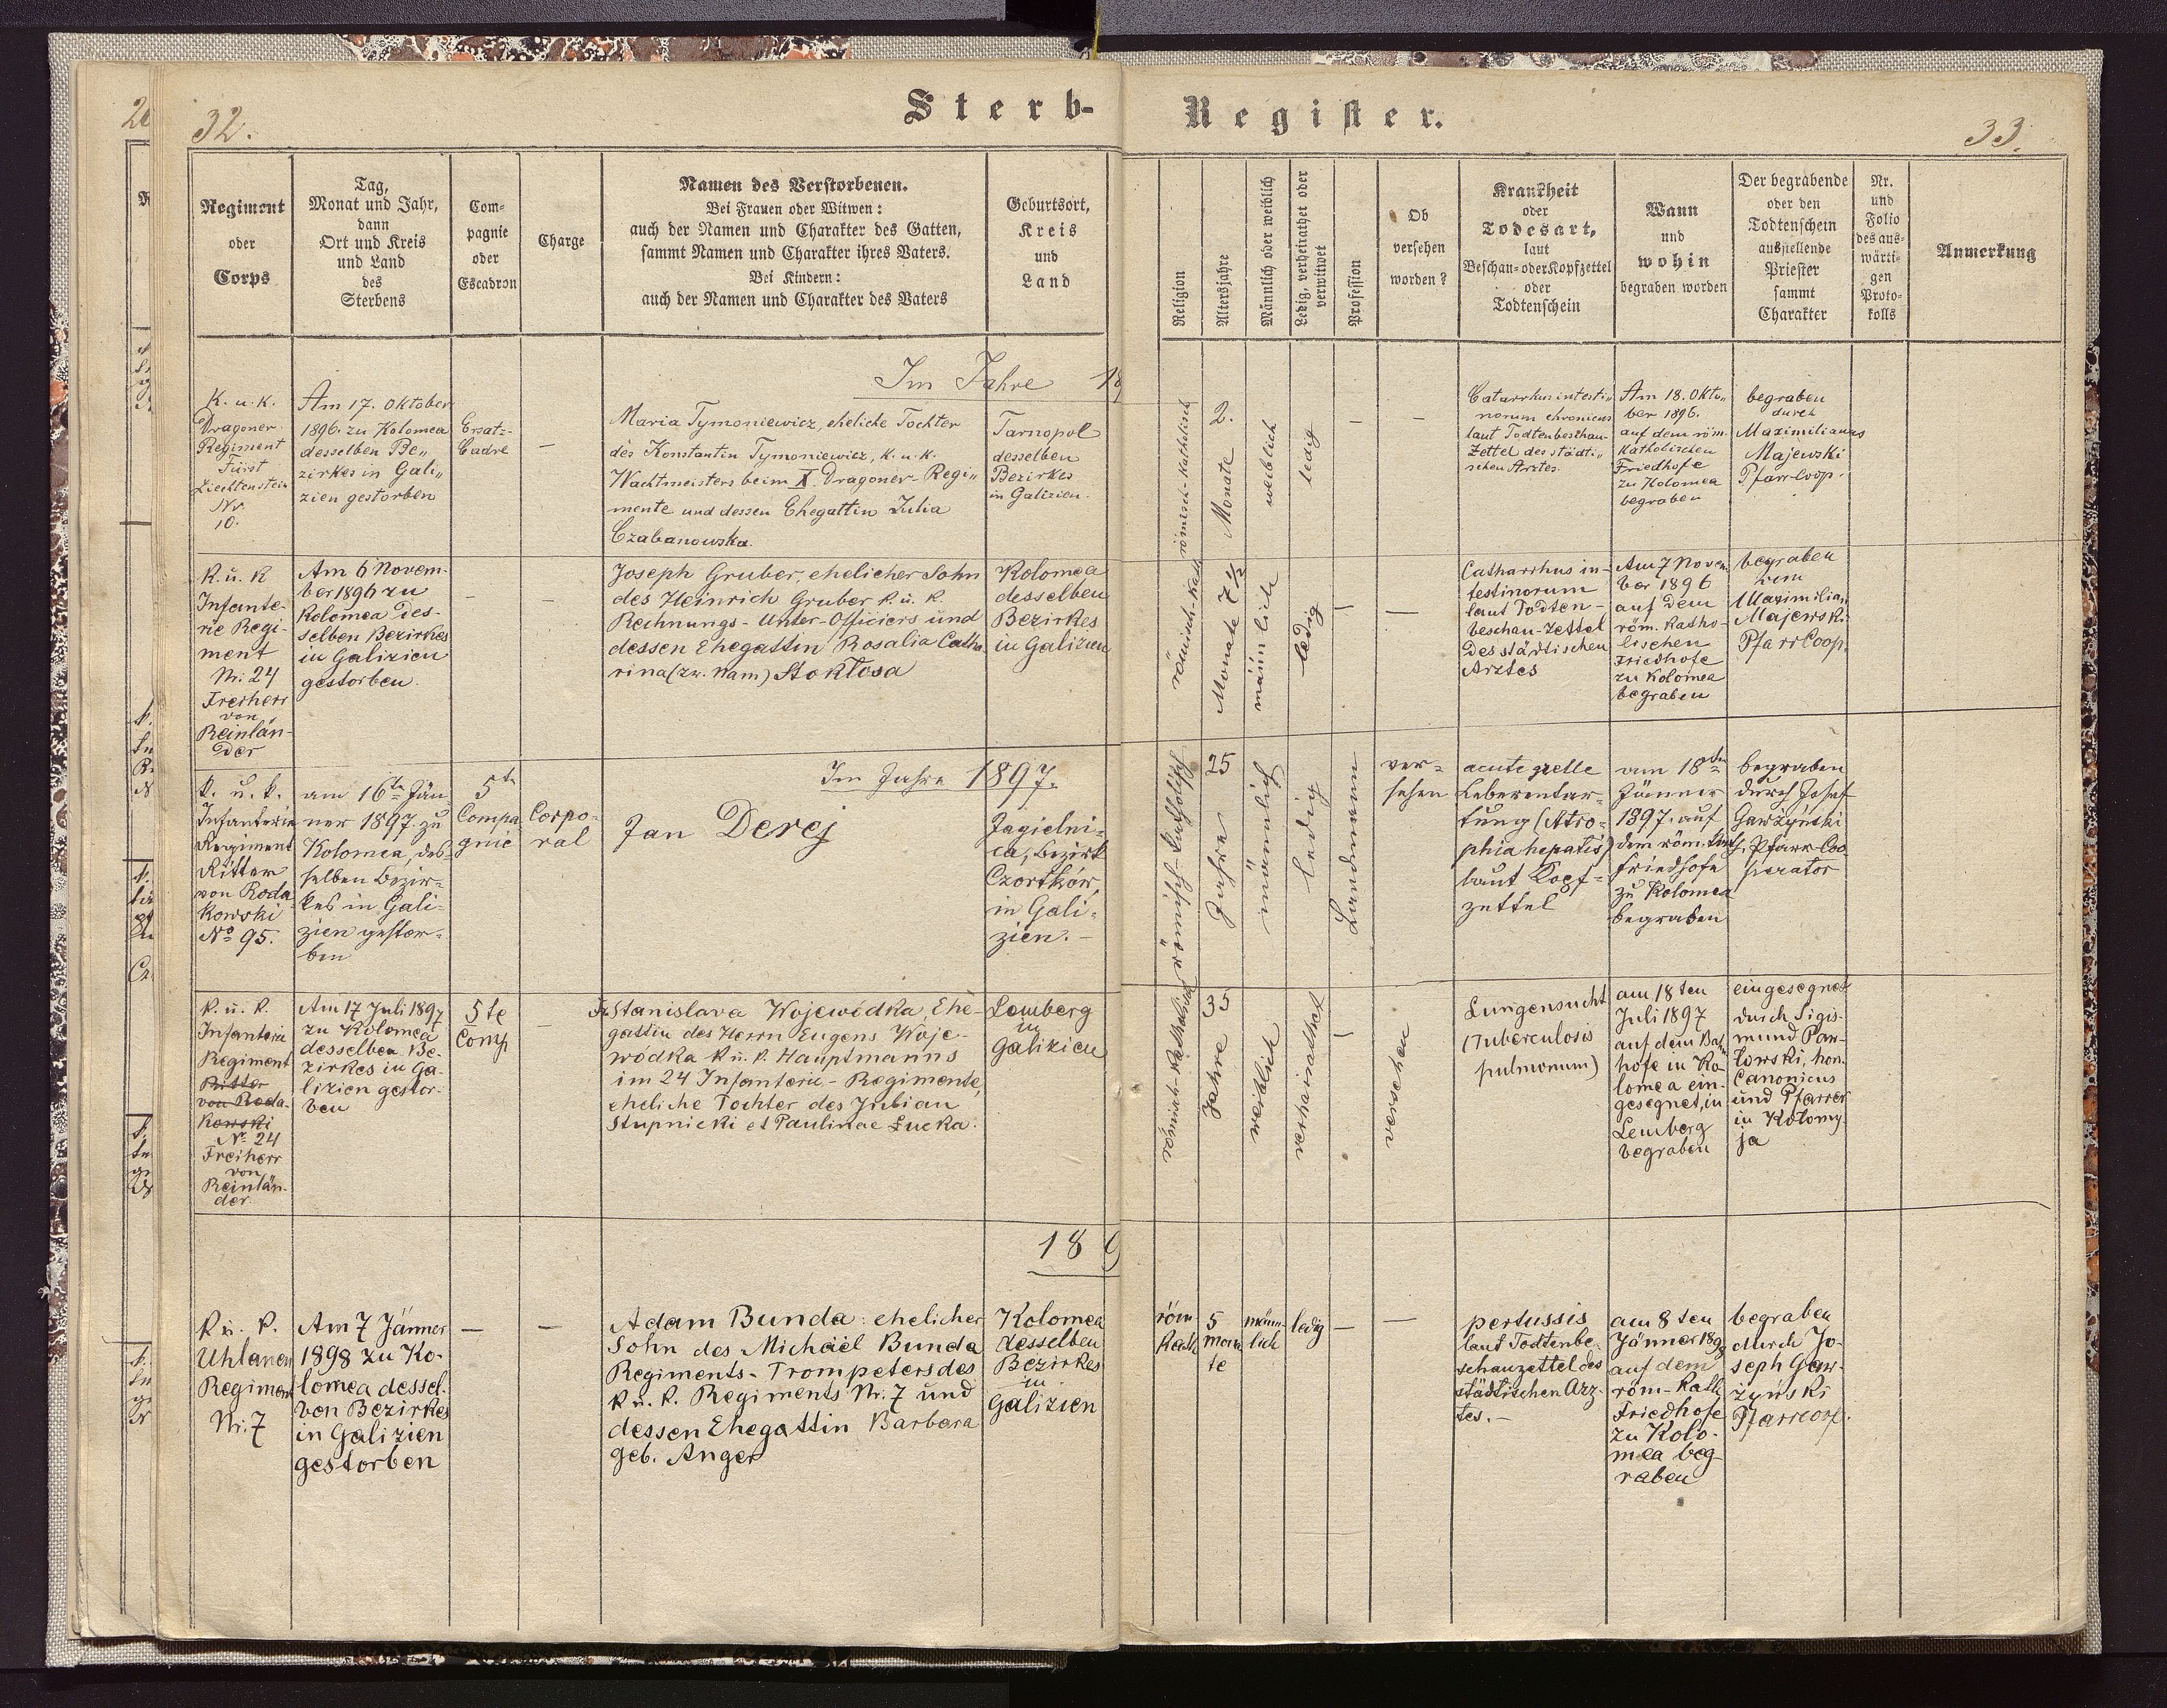 32.
Sterb-
Register.
33.
Regiment
oder
Corps
Tag,
Monat und Jahr,
dann
Ort und Kreis
und Land
des
Sterbens
Com-
pagnie
oder
Escadron
Charge
Namen des Verstorbenen.
Bei Frauen oder Witwen:
auch der Namen und Charakter des Gatten,
sammt Namen und Charakter ihres Vaters.
Bei Kindern:
auch der Namen und Charakter des Vaters
Geburtsort,
Kreis
und
Land
Religion
Altersjahre
Männlich oder weiblich
Ledig, verheirathet oder
verwitwet
Profession
Ob
versehen
worden?
Krankheit
oder
Todesart,
laut
Beschau- oder Kopfzettel
oder
Todtenschein
Wann
und
wohin
begraben worden
Der begrabende
oder den
Todtenschein
ausstellende
Priester
sammt
Charakter
Nr.
und
Folio
des aus-
wärti-
gen
Proto-
kolls
Anmerkung
Im Jahre 18
K. u. K.
Dragoner
Regiment
Fürst
Liechtenstein
Nr.
10.
Am 17. Oktober
1896. zu Kolomea
desselben Be„
zirkes in Gali„
zien gestorben
Ersatz-
Cadre
—
Maria Tymoniewicz, eheliche Tochter
des Konstantin Tymoniewicz, K. u. K.
Wachtmeisters beim X. Dragoner-Regi„
mente und dessen Ehegattin Julia
Czabanowska.
Tarnopol
desselben
Bezirkes
in Galizien.
römisch-katholisch
2.
Monate
weiblich
ledig
—
—
Catarrhus intesti„
norum chronicus
laut Todtenbeschau-
Zettel des städti„
schen Arztes.
Am 18. Okto„
ber 1896.
auf dem röm.
katholischen
Friedhofe
zu Kolomea
begraben
begraben
durch
Maximilianus
Majewski
Pfarr-Coop.
K. u. K
Infante-
rie Regi-
ment
Nr. 24
Freiherr
von
Reinlän-
der
Am 6 Novem-
ber 1896 zu
Kolomea des-
selben Bezirkes
in Galizien
gestorben.
—
—
Joseph Gruber, ehelicher Sohn
des Heinrich Gruber K. u. K.
Rechnungs-Unter-Officiers und
dessen Ehegattin Rosalia Catha-
rina (zw. Nam) Stokłosa
Kolomea
desselben
Bezirkes
in Galizien
römisch-Kath.
Monate 7 1/2
männlich
ledig
—
—
Catharrhus in-
testinorum
laut Todten-
beschau-Zettel
des städtischen
Arztes
Am 7 Novem
ber 1896
auf dem
röm. Katho-
lischen
Friedhofe
zu Kolomea
begraben
begraben
vom
Maximilian
Majewski
Pfarr Coop.
Im Jahre 1897.
K. u. k.
Infanterie
Regiment
Ritter
von Roda
kowski
No 95.
am 16ten Jän
ner 1897. zu
Kolomea, des-
selben Bezir-
kes in Gali-
zien gestor-
ben
5te
Compa
gnie
Corpo-
ral
Jan Derej
Jagielni-
ca, Bezirk
Czortków,
in Gali-
zien. —
römisch-katholisch
25
Jahre
männlich
ledig
Landmann
ver-
sehen
acute gelbe
Leberentar-
tung (Atro-
phia hepatis)
laut Kopf-
zettel
am 18ten
Jänner
1897. auf
dem röm. kath.
Friedhofe
zu Kolomea
begraben
begraben
durch Josef
Gawżyński
Pfarr-Coo
perator
K. u. K.
Infanterie
Regiment
Ritter
von Roda-
kowski
Nr. 24
Freiherr
von
Reinlän-
der.
Am 17 Juli 1897
zu Kolomea
desselben Be-
zirkes in Ga-
lizien gestor-
ben
5te
Comp
—
Fr. Stanislava Wojewódka, Ehe-
gattin des Herrn Eugens Woje-
wódka K. u. K. Hauptmanns
im 24 Infanterie-Regimente,
eheliche Tochter des Julian
Stupnicki et Paulinae Łucka.
Lemberg
in
Galizien
römisch-Katholisch
35
Jahre
weiblich
verheirathet
—
versehen
Lungensucht
(Tuberculosis
pulmonum)
am 18ten
Juli 1897
auf dem Bahn
hofe in Ko
lomea ein-
gesegnet, in
Lemberg
begraben
eingesegnet
durch Sigis-
mund Paw-
łowski, hon.
Canonicus
und Pfarrer
in Kołomy-
ja
189
K u. K.
Uhlanen
Regiment
Nr. 7
Am 7 Jänner
1898 zu Ko-
lomea dessel-
ben Bezirkes
in Galizien
gestorben
—
—
Adam Bunda: ehelicher
Sohn des Michäel Bunda
Regiments-Trompeters des
K u. K. Regiments Nr. 7 und
dessen Ehegattin Barbara
geb. Anger
Kolomea
desselben
Bezirkes
in
Galizien
röm
Kath
5
Mona
te
männ-
lich
ledig
—
—
pertussis
laut Todtenbe-
schauzettel des
städtischen Arz-
tes. —
am 8ten
Jänner 1898
auf dem
röm-Kath
Friedhofe
zu Kolo-
mea beg-
raben
begraben
durch Jo-
seph Gaw-
żyński
Pfarrcoop.